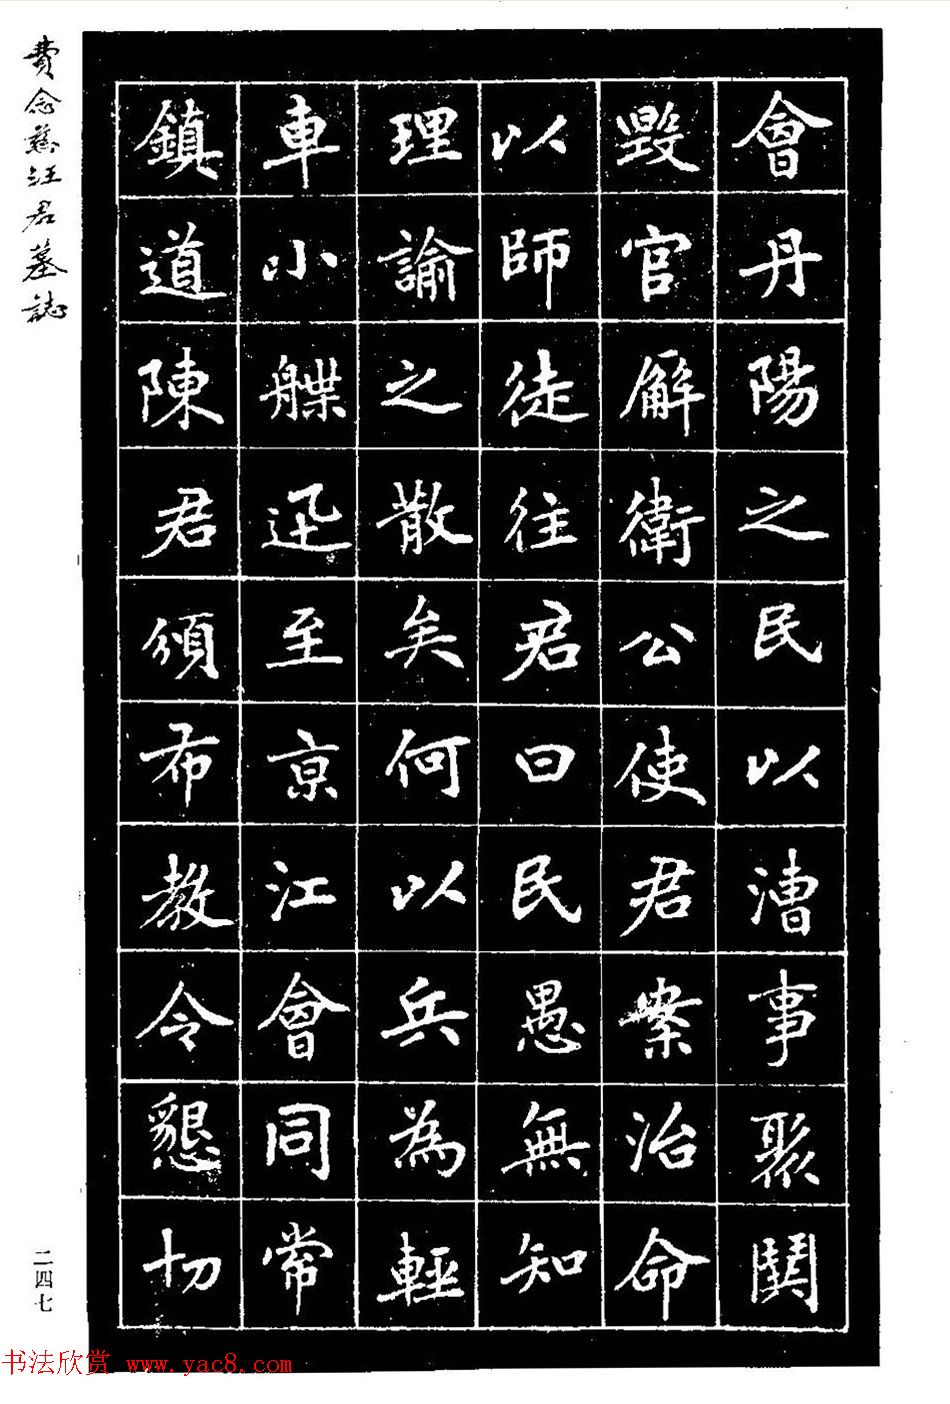 會丹陽之民以漕事聚鬨
毀官廨衛公使君案治命
以師徒往君曰民愚無知
理諭之散矣何以兵為輕
車小艓迅至京江會同常
鎮道陳君頒布教令懇切
費念慈汪君墓誌
二四七
书法欣赏 www.yac8.com